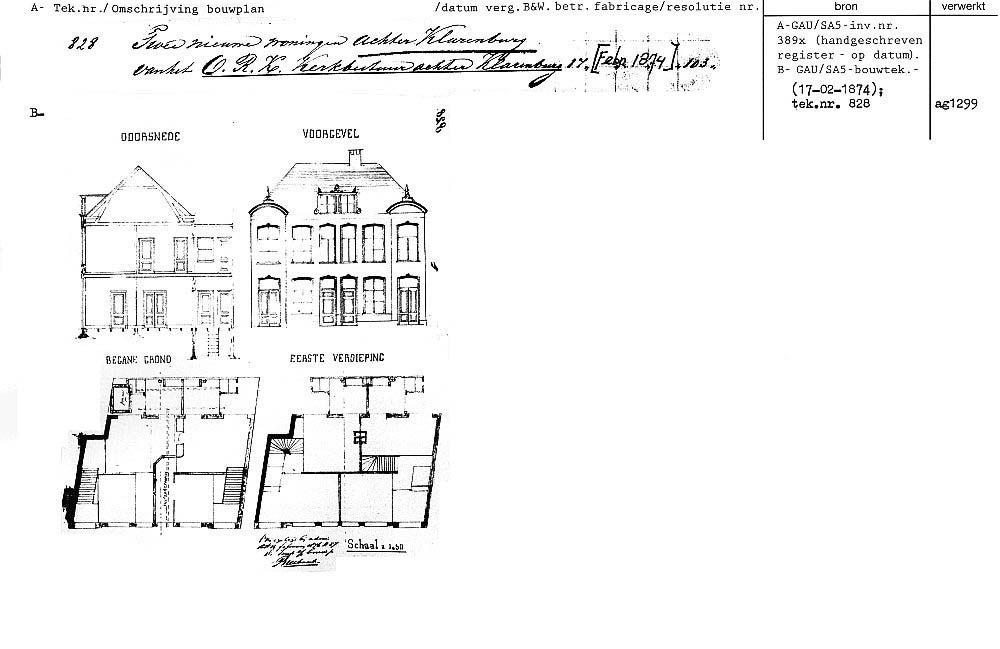 A- Tek.nr./Omschrijving bouwplan /datum verg.B&W. betr. fabricage/resolutie nr. bron verwerkt
828 Twee nieuwe woningen achter Klarenburg
van het O. R. K. Kerkbestuur achter Klarenburg 17. [Febr. 1874]. 103.
A-GAU/SA5-inv.nr.
389x (handgeschreven
register - op datum).
B- GAU/SA5-bouwtek.-
(17-02-1874);
tek.nr. 828
ag1299
B-
828
DOORSNEDE VOORGEVEL
BEGANE GROND EERSTE VERDIEPING
Schaal a 1:50